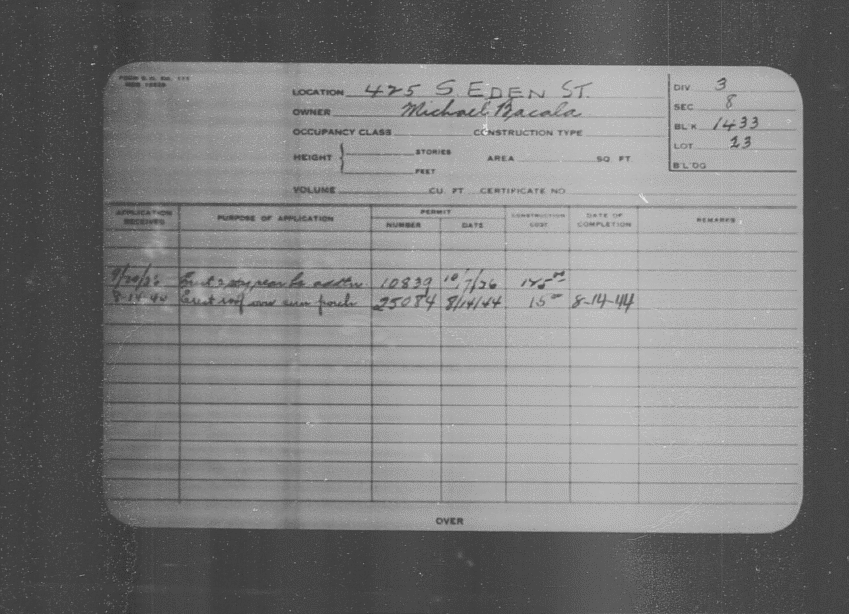 LOCATION 425 S. EDEN ST.
OWNER Michael Bacala
OCCUPANCY CLASS CONSTRUCTION TYPE
HEIGHT STORIES AREA SQ FT
FEET
VOLUME CU. FT CERTIFICATE NO
DIV 3
SEC 8
BL'K 1433
LOT 23
B'L'DG
APPLICATION RECEIVED PURPOSE OF APPLICATION PERMIT CONSTRUCTION COST DATE OF COMPLETION REMARKS
NUMBER DATE
9/20/26 Erect 2 sty rear addtn 10839 10/7/26
8-14-44 Erect roof over rear porch 25084 8/14/44 15 8-14-44
OVER